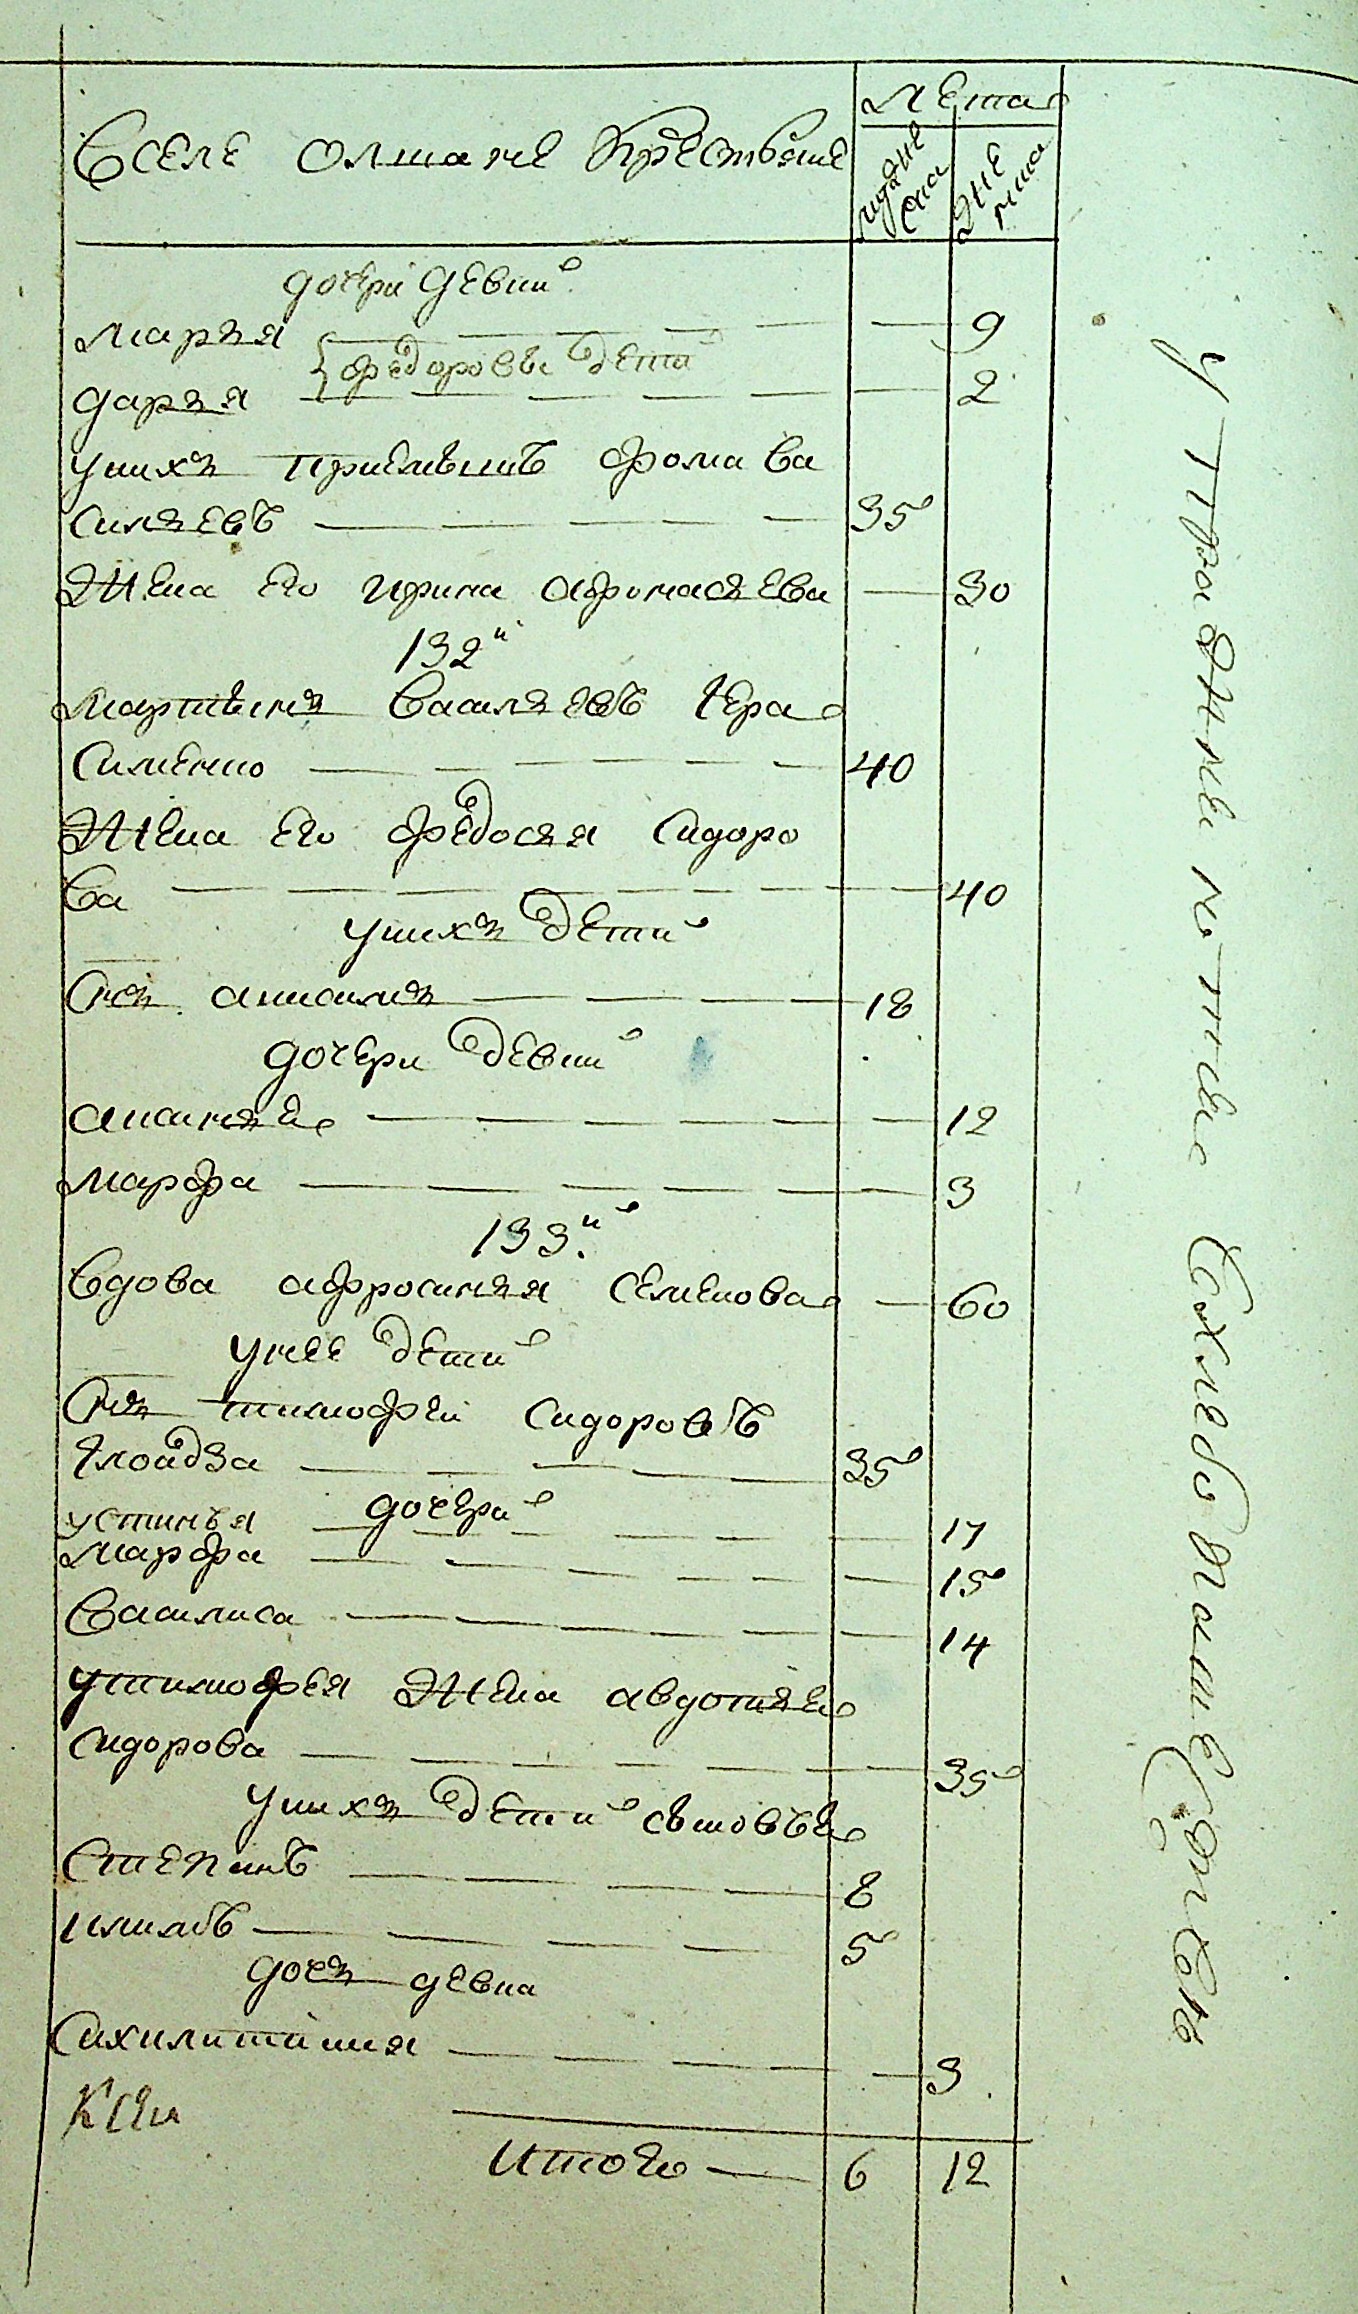 Вселе олшане крестьяне
лета
мужие ска
жие нска
дочери девки
марья — 9
{федоровы дети
дарья — 2
унихъ приемышъ фома ва
сильевъ — 35
жена его ирина афонасьева — 30
132й
мартынъ васильевъ гера
сименко — 40
жена его федосья сидоро
ва — 40
унихъ дети
снъ анисимъ — 18
дочери девки
аксинья — 12
марфа — 3
133й
вдова афросинья семенова — 60
унее дети
снъ тимофей сидоровъ
35
дочери
устинья — 17
марфа — 15
василиса — 14
утимофея жена авдотья
сидорова — 35
унихъ дети сыновья
степанъ — 8
5
дочь девка
3
итого — 6 12